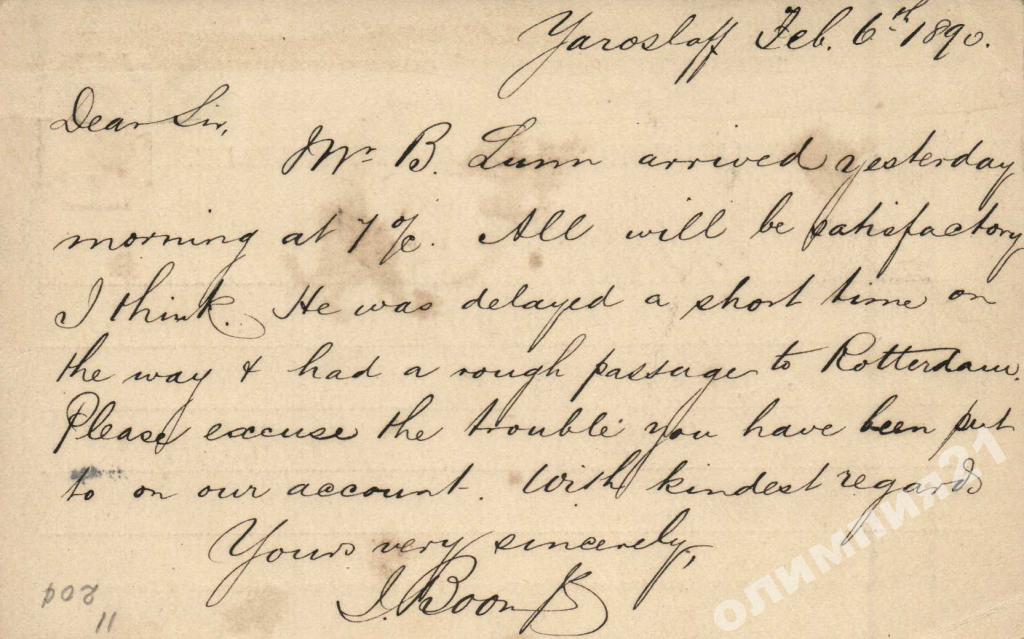 Yaroslaff Feb. 6th 1890.
Dear Sir,
Mr. B. Lunn arrived yesterday
morning at 7 o/c. All will be satisfactory
I think. He was delayed a short time on
the way & had a rough passage to Rotterdam.
Please excuse the trouble you have been put
to on our account. With kindest regards
Yours very sincerely,
J. Boon
олимпия21